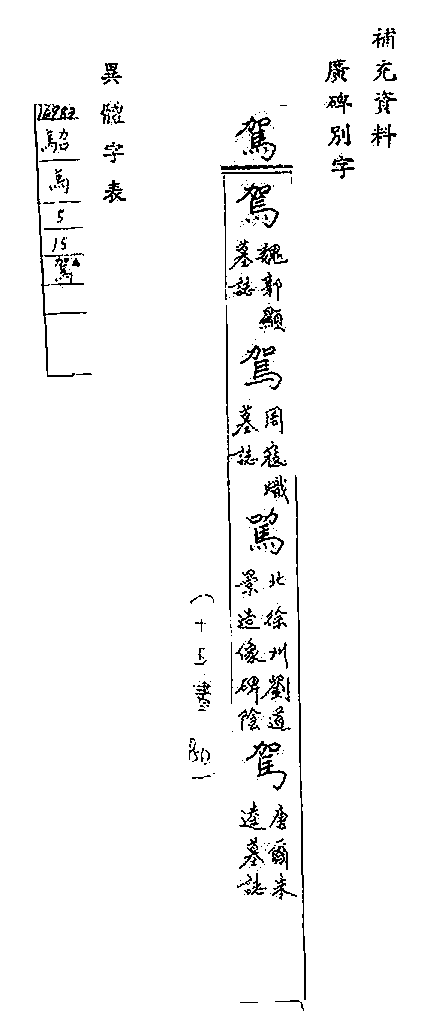 補充資料
廣碑別字
駕
駕 魏郭顯墓誌
駕 周寇熾墓誌
駕 北徐州劉道景造像碑陰
駕 唐爾朱逵墓誌
(十五畫
異體字表
馬
5
15
駕